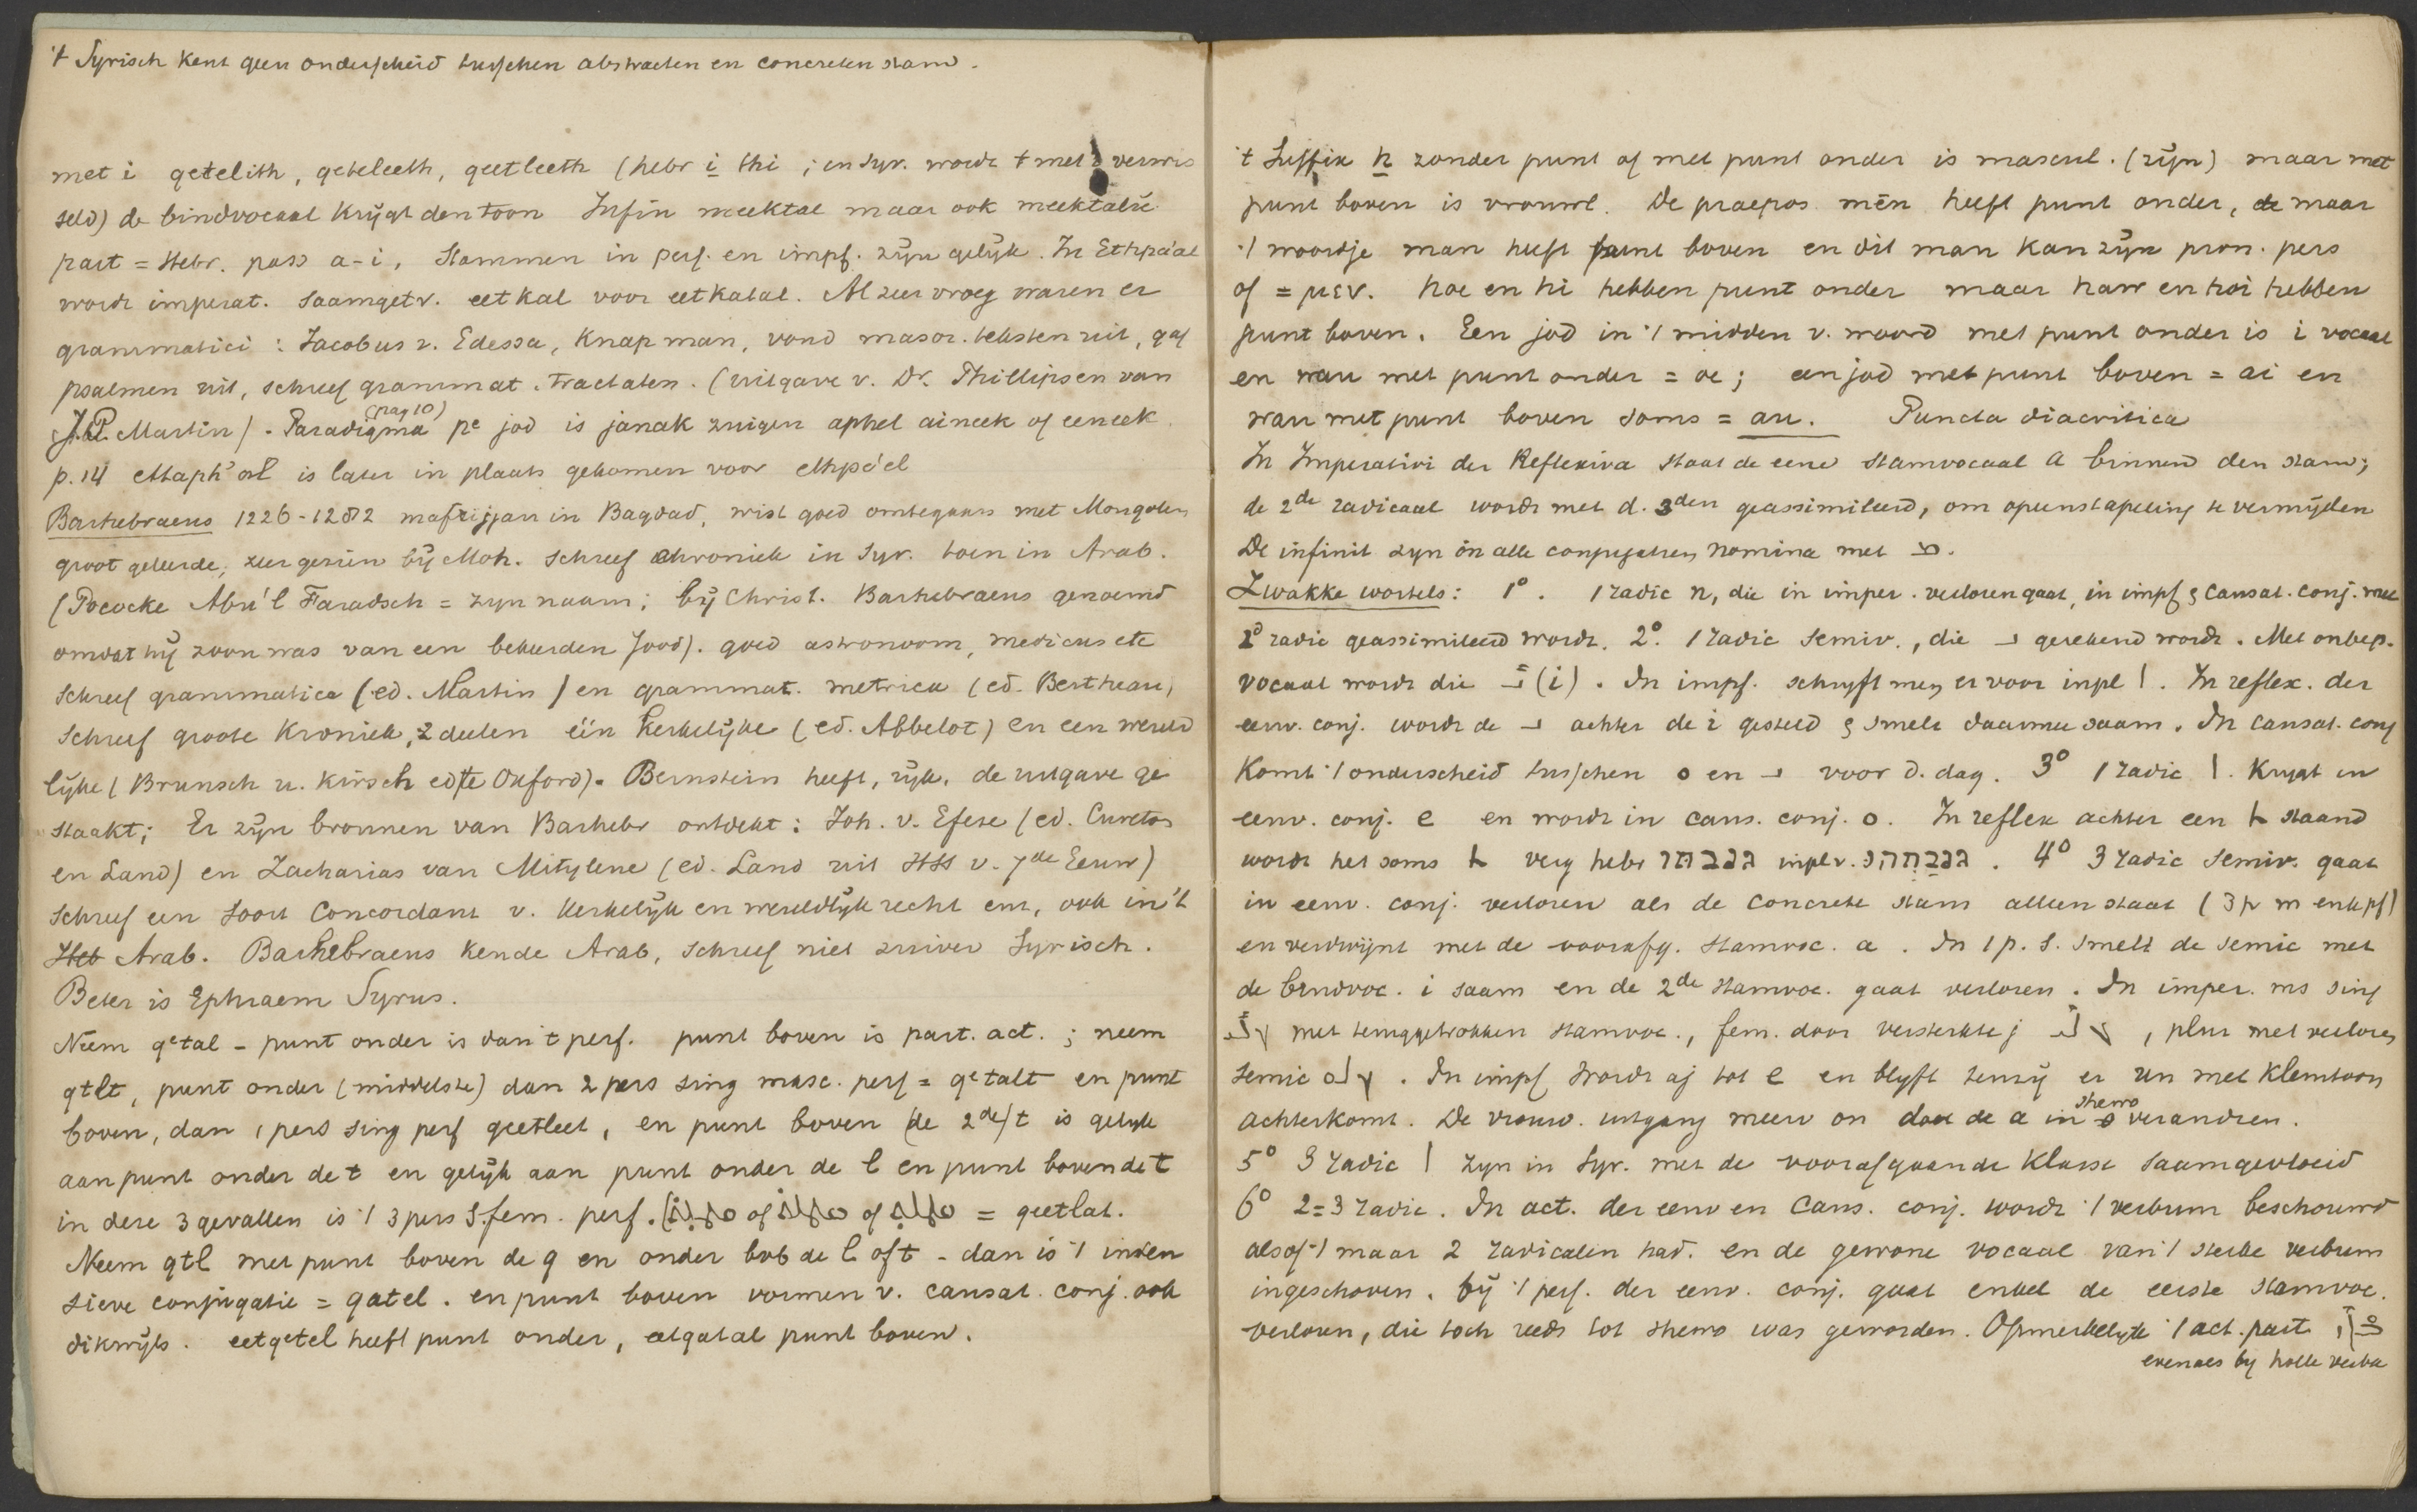 't Syrisch kent geen onderscheid tusschen abstracten en concreten stam.
met i qetelith, qeteleeth, qeetleeth (hebr i thi ; en Syr. wordt t met verwis
seld) de bindvocaal krijgt den toon Infin meektal maar ook meektalu
part = Hebr. pass a-i, Stammen in perf. en impf. zijn gelijk. In Ethpa'al
wordt imperat. saamgetr. eetkal voor eetkatal. Al zeer vroeg waren er
grammatici : Jacobus v. Edessa, knap man, vond masor. teksten uit, gaf
psalmen uit, schreef grammat. tractaten. (uitgave v. Dr. Phillipsen van
J.P. Martin). Paradigma (pag 10) pe jod is janak zuigen aphel aineek of eeneek.
p. 14 ettaph'al is later in plaats gekomen voor ethpa'el
Barhebraeus 1226-1282 mafrijjan in Bagdad, wist goed omtegaan met Mongolen
groot geleerde, zeer gezien bij Moh. schreef chroniek in Syr. toen in Arab.
(Pococke Abu'l Faradsch = zyn naam; bij Christ. Barhebraeus genoemd
omdat hij zoon was van een bekeerden Jood). goed astronoom, medicus etc
schreef grammatica (ed. Martin) en grammat. metrica (ed. Bertheau)
schreef groote Kroniek, 2 deelen één kerkelijke (ed. Abbelos) en een wereld
lijke (Brunsch u. Kirsch edite Oxford). Bernstein heeft, rijk, de uitgave ge
staakt; Er zijn bronnen van Barhebr ontdekt: Joh. v. Efese (ed. Cureton
en Land) en Zacharias van Mitylene (ed. Land uit HSS v. 7de Eeuw)
schreef een soort Concordant v. kerkelijk en wereldlijk recht enz, ook in 't
Heb Arab. Barhebraeus kende Arab, schreef niet zuiver Syrisch.
Beter is Ephraem Syrus.
Neem qetal - punt onder is dan 't perf. punt boven is part. act. ; neem
qtlt, punt onder (middelste) dan 2 pers sing masc. perf = qetalt en punt
boven, dan 1 pers sing perf qeetleet, en punt boven (de 2de) t is gelijk
aan punt onder de t en gelijk aan punt onder de l en punt boven de t
in deze 3 gevallen is 't 3 pers S. fem. perf. of of = qeetlat.
Neem qtl met punt boven de q en onder de l of t - dan is 't inten
sieve conjugatie = qatel. en punt boven vormen v. causat. conj. ook
dikwijls. eetqetel heeft punt onder, etqatal punt boven.
't Suffix h zonder punt of met punt onder is mascul. (zijn) maar met
punt boven is vrouwl. De praepos. mēn heeft punt onder, de maar
't woordje man heeft punt boven en dit man kan zijn pron. pers
of = μεν. hoe en hi hebben punt onder maar haw en hoi hebben
punt boven. Een jod in 't midden v. woord met punt onder is i vocaal
en wau met punt onder = oe; een jod met punt boven = ai en
wau met punt boven soms = au. Puncta diacritica
In Imperativi der Reflexiva staat de eene stamvocaal a binnen den stam;
de 2de radicaal wordt met d. 3den geassimileerd, om opeenstapeling te vermijden
De infinit zyn in alle conjugatien nomina met ܡ.
Zwakke wortels: 1o. 1 radic n, die in imper. verloren gaat, in impf & causat. conj. met
2o radic geassimileerd wordt. 2o. 1 radic semiv., die ܝ gerekend wordt. Met onbep.
vocaal wordt die ܝ (i). In impf. schryft men er voor inpl ܐ. In reflex. der
eenv. conj. wordt de ܝ achter de i gesteld & smelt daarmee saam. In causat. conj
komt 't onderscheid tusschen ܘ en ܝ voor d. dag. 3o 1 radic ܐ. Krygt in
eenv. conj. e en wordt in caus. conj. o. In reflex achter een ܬ staand
wordt het soms ܬ verg hebr inpl v. . 4o 3 radic semiv. gaat
in eenv. conj. verloren als de concrete stam alleen staat (3 p m enk pf)
en verdwijnt met de voorafg. stamvoc. a. In 1 p. s. smelt de semiv met
de bindvoc. i saam en de 2de stamvoc. gaat verloren. In imper. ms sing
met teruggetrokken stamvoc., fem. door versterkte j , plur met verloren
semiv . In impf wordt aj tot e en blyft tenzij er un met klemtoon
achterkomt. De vrouw. uitgang meerv on doet de a in shewa verandren.
5o 3 radic ܐ zyn in Syr. met de voorafgaande klasse saamgevloeid
6o 2=3 radic. In act. der eenv en Caus. conj. wordt 't verbum beschouwd
alsof 't maar 2 radicalen had. en de gewone vocaal van 't sterke verbum
ingeschoven. bij 't perf. der eenv. conj. gaat enkel de eerste stamvoc.
verloren, die toch reeds tot shewa was geworden. Opmerkelijk 't act. part.
evenals by holle verba